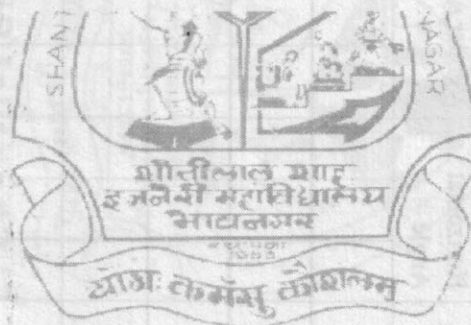 SHANT
NAGAR
शांतीलाल शाह
इजनेरी महाविद्यालय
भावनगर
योगः कर्मसु कौशलम्